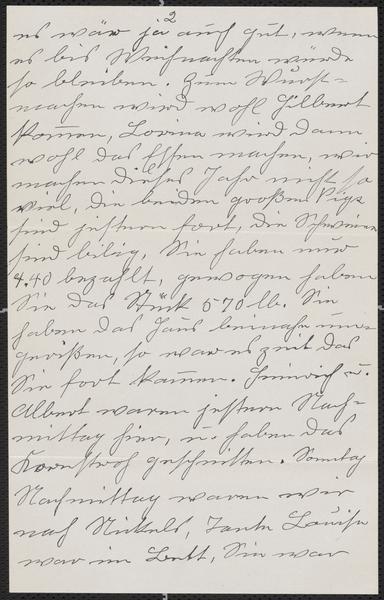 2
es wär ja auch gut, wenn
es bis Weihnachten würde
so bleiben. Zum Wurst-
machen wird wohl Hilbert
kommen, Lorina wird dann
wohl das Essen machen, wir
machen dieses Jahr nicht so
viel, die beiden großen Pigs
sind jestern fort, die Schweine
sind bilig, Sie haben nur
4.40 bezahlt, gewogen haben
Sie das Stük 570 lb. Sie
haben das Haus beinahe um-
gerißen, so war es zeit das
Sie fort kammen. Heinrich u.
Albert waren jestern Nach-
mittag hier, u. haben das
Kornstroh geschnitten. Sonntag
Nachmittag waren wir
nach Nickels, Tante Louise
war im Bett, Sie war